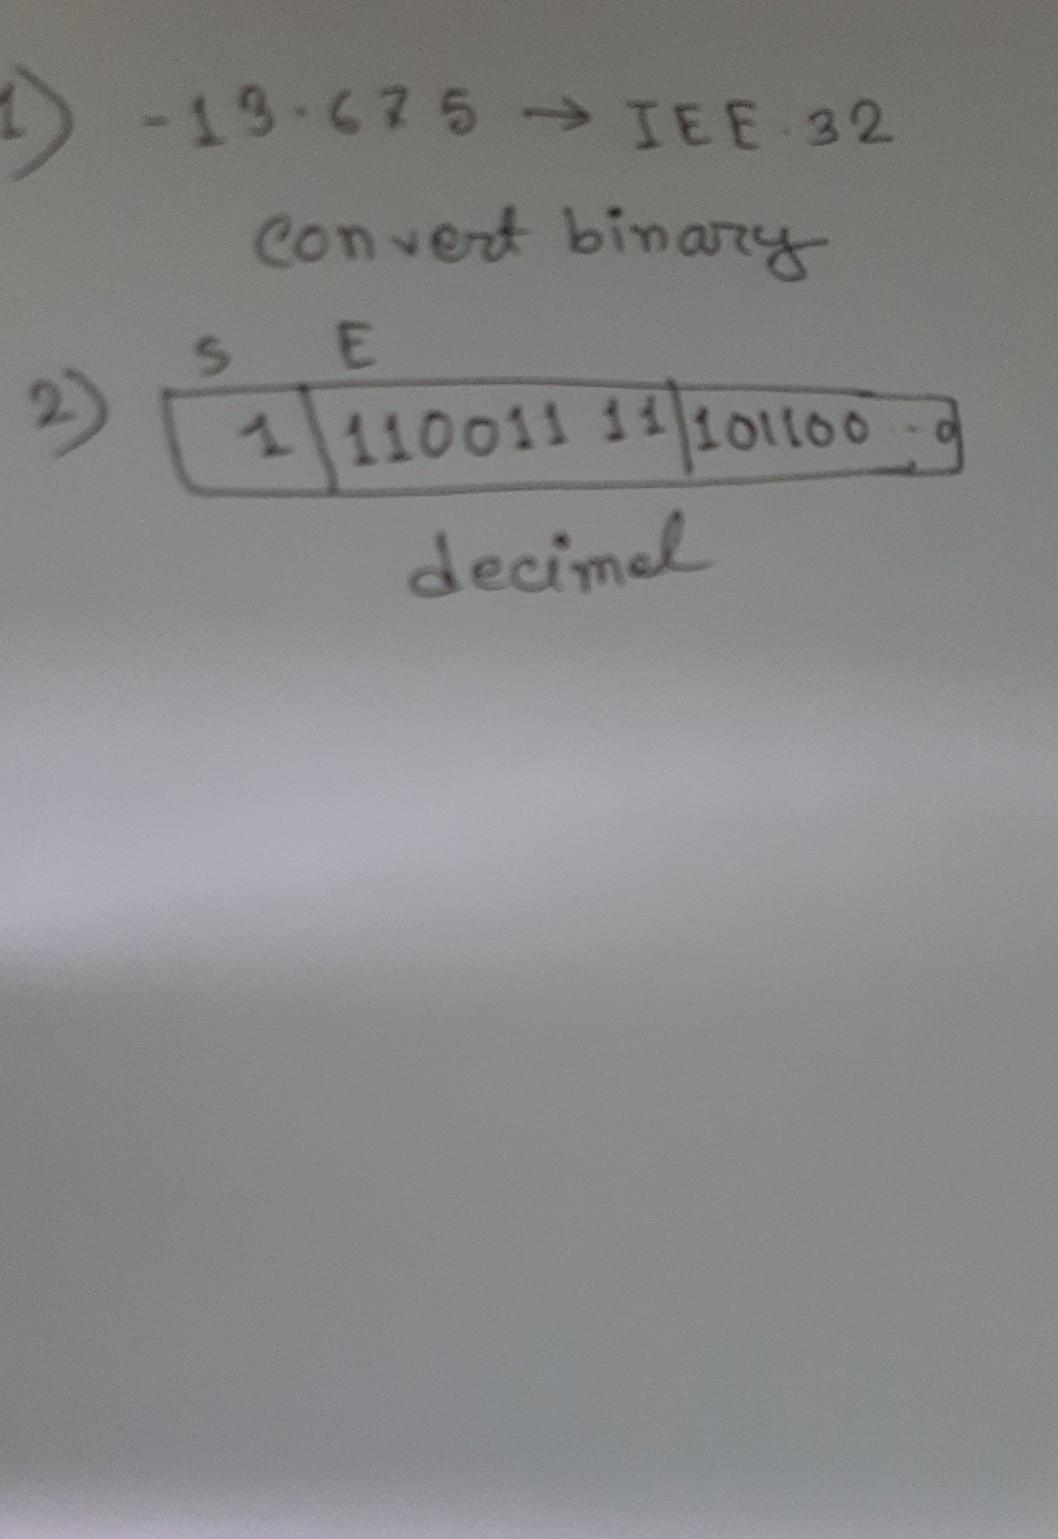 1) -13.675 → IEE.32
convert binary
S E
2) 1 | 110011 11 | 101100 ..0
decimal